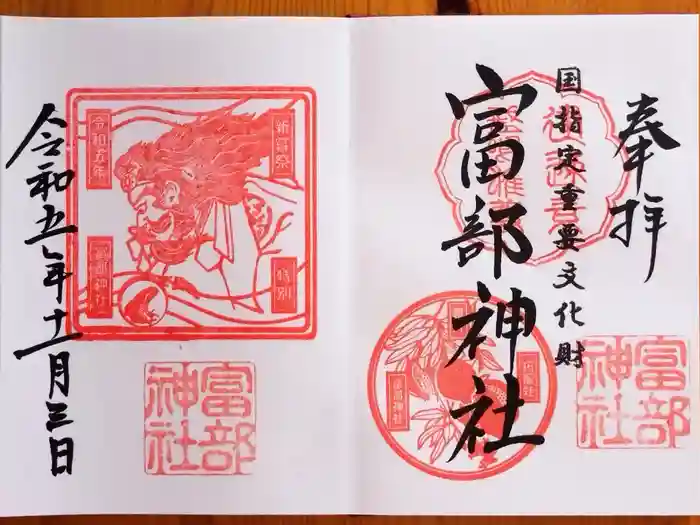 奉拝
国指定重要文化財
富部神社
富部神社
富部神社
令和五年十一月三日
新嘗祭
令和五年
特別
富部神社
富部神社